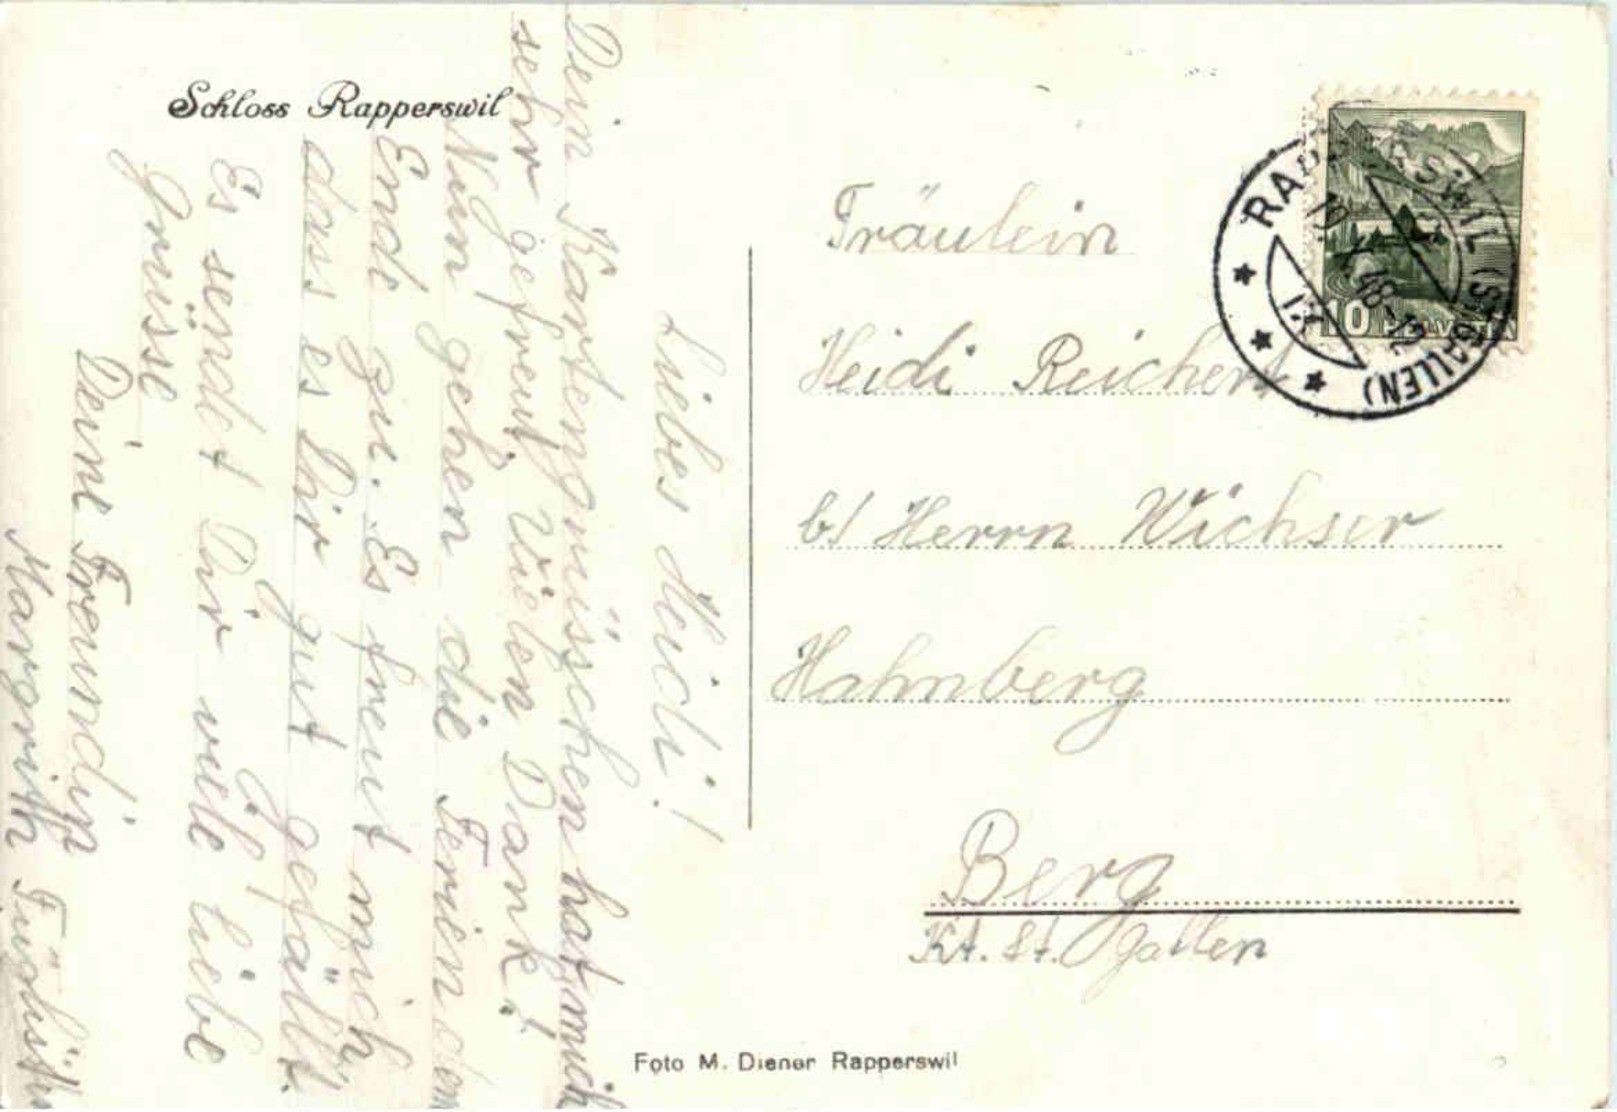 Schloss Rapperswil
Liebes Heidi!
Dein Kartengrüsschen hat mich
sehr gefreut. Vielen Dank!
Nun gehen die Ferien dem
Ende zu. Es freut mich,
dass es Dir gut gefällt.
Es sendet Dir viele liebe
Grüsse
Deine Freundin
Margrith
Fräulein
Heidi Reichert
b/ Herrn Wichser
Hahnberg
Berg
Kt. St. Gallen
RAPPERSWIL (ST. GALLEN)
10 HELVETIA
Foto M. Diener Rapperswil